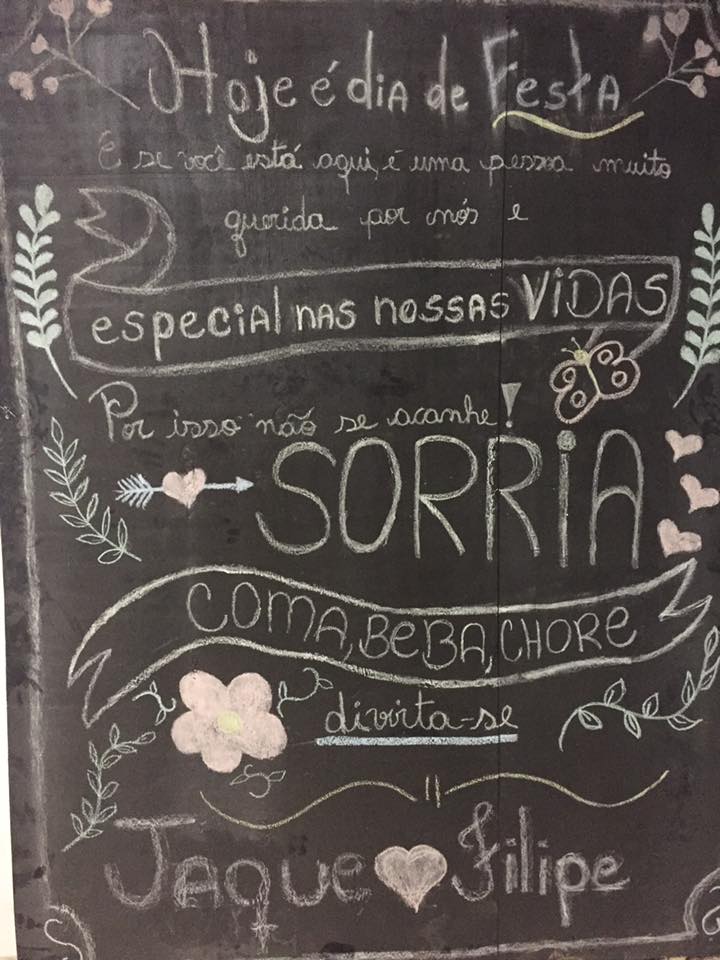 Hoje é dia de Festa
E se você está aqui, é uma pessoa muito
querida por nós e
especial nas nossas ViDAS
Por isso não se acanhe!
SORRiA
COMA, BeBA, CHORe
divirta-se
Jaque Filipe